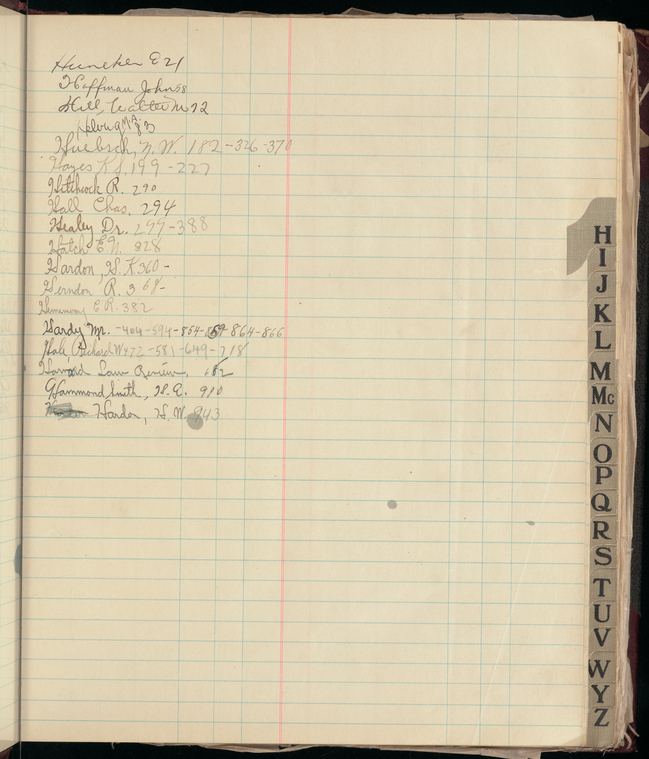 Huneker E 21
Hoffman John 58
Hill, Walter M 72
Helvug M.A. 83
Huebsch, B. W. 182-326-370
Hayes K S. 199-227
Hitchcock R. 290
Hall Chas. 294
Healey Dr. 297-388
Hatch E.N. 328
Hardon, H. K 360-
Herndon R. 368-
E R. 382
Hardy Mr. -404-594-854-859-864-866
Hale, Richard W 472-581-649-718
Harvard Law Review, 682
Hammond Smith, H. E. 910
Harder, H. W. 943
H
I
J
K
L
M
Mc
N
O
P
Q
R
S
T
U
V
W
Y
Z